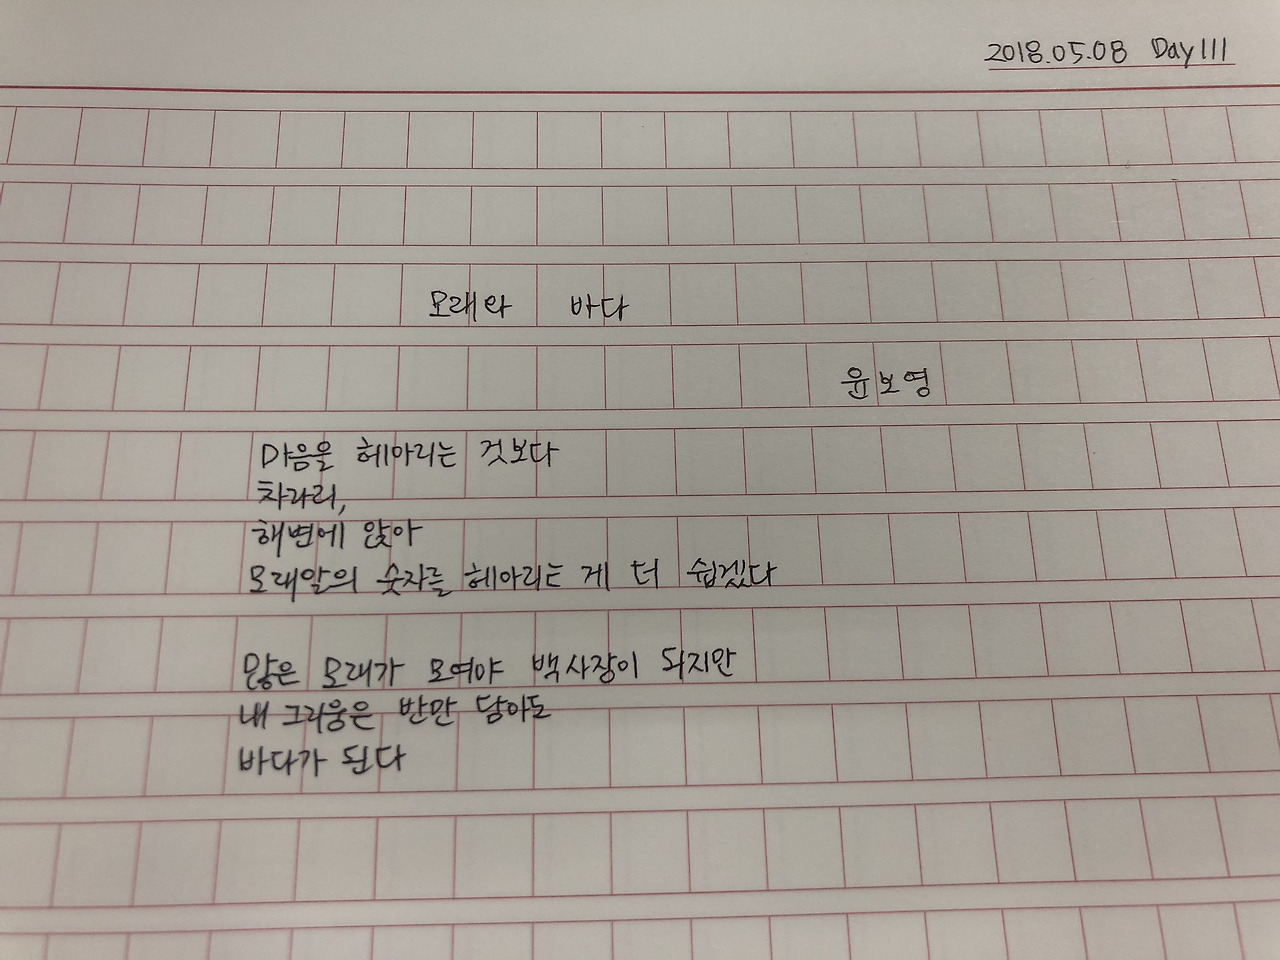 2018.05.08 Day 111
모래와 바다
윤보영
마음을 헤아리는 것보다
차라리,
해변에 앉아
모래알의 숫자를 헤아리는 게 더 쉽겠다
많은 모래가 모여야 백사장이 되지만
내 그리움은 반만 담아도
바다가 된다